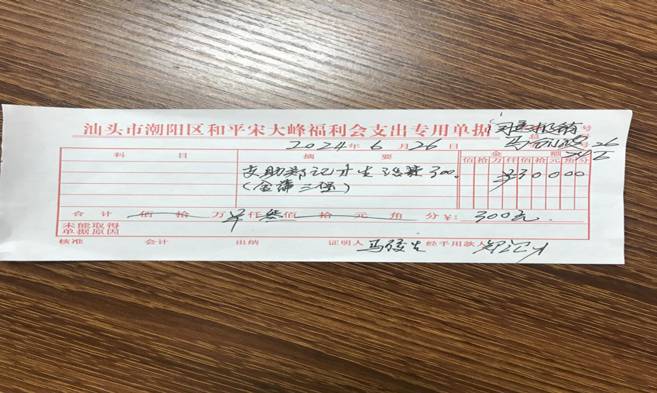 汕头市潮阳区和平宋大峰福利会支出专用单据
同意报销 号
总
2024年6月26日
科目 摘要 金额
佰拾万仟佰拾元角分
支助郑记才生活费300.
¥30000
(金浦三堡)
合计 佰 拾 万 仟叁佰 拾 元 角 分¥: 300元
未能取得
单据原因
核准 会计 出纳 证明人 经手用款人 郑记才